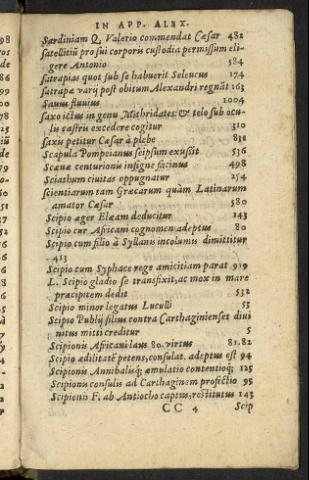 IN APP. ALEX.
Sardiniam Q. Valerio commendat Cæsar 482
satellitiũ pro sui corporis custodia permissum eli
gere Antonio 584
satrapias quot sub se habuerit Seleucus 174
satrapæ varij post obitum Alexandri regnãt 163
Sauus fluuius 1004
saxo ictus in genu Mithridates: & telo sub ocu
lu castris excedere cogitur 310
saxis petitur Cæsar à plebe 831
Scapula Pompeianus seipsum exussit 536
Scæuæ centurionis insigne facinus 498
Sciathum ciuitas oppugnatur 254
scientiarum tam Græcarum quàm Latinarum
amator Cæsar 580
Scipio æger Elæam deducitur 143
Scipio cur Africani cognomen adeptus 80
Scipio cum filio à Syllanis incolumis dimittitur
413
Scipio cum Syphace rege amicitiam parat 919
L. Scipio gladio se transfixit, ac mox in mare
præcipitem dedit 532
Scipio minor legatus Luculli 53
Scipio Publij filius contra Carthaginienses diui
nitus mitti creditur 5
Scipionis Africani laus 80. virtus 81.82
Scipio ædilitatẽ petens, consulat. adeptus est 94
Scipionis Annibalisq; æmulatio contentioq; 125
Scipionis consulis ad Carthaginem profectio 95
Scipionis F. ab Antiocho captus, restitutus 143
CC 4 Scip